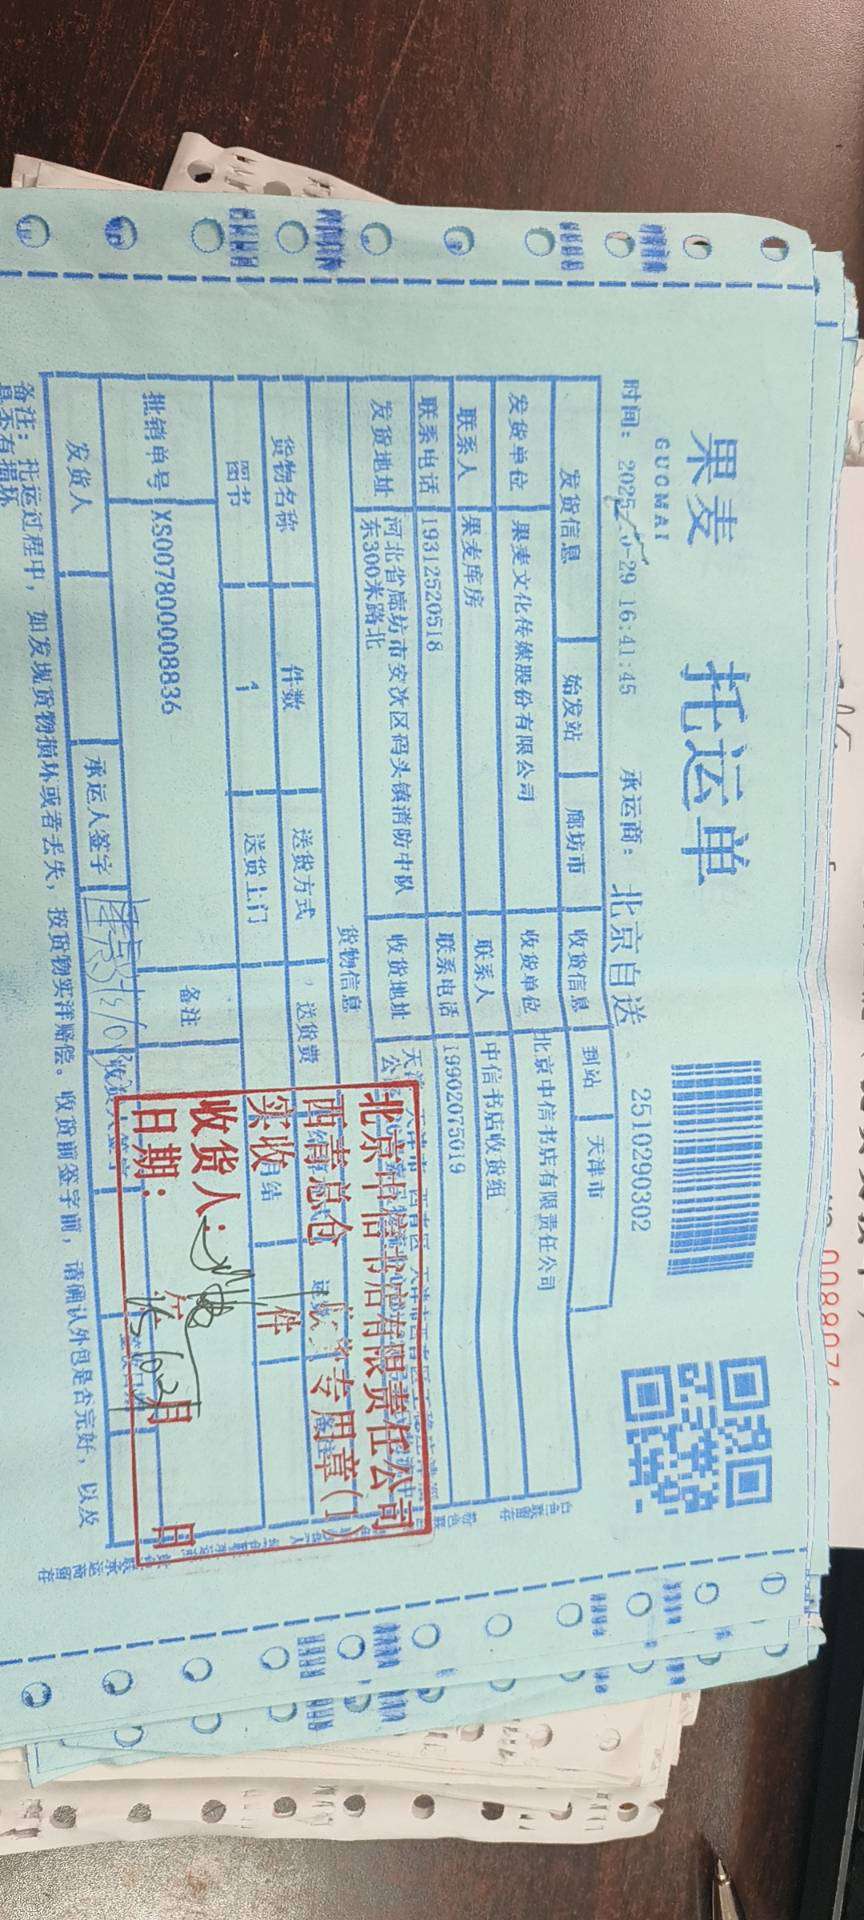 果麦
GUOMAI
托运单
时间：2025-10-29 16:41:45 承运商：北京自送 2510290302
发货信息 始发站 廊坊市 收货信息 到站 天津市
发货单位 果麦文化传媒股份有限公司 收货单位 北京中信书店有限责任公司
联系人 果麦库房 联系人 中信书店收货组
联系电话 19312520518 联系电话 19902075019
发货地址 河北省廊坊市安次区码头镇消防中队东300米路北 收货地址
货物信息
货物名称 件数 送货方式 送货费
图书 1 送货上门
批销单号 XS007800008836 备注
发货人 承运人签字
备注：托运过程中，如发现货物损坏或者丢失，按货物实洋赔偿。收货前签字前，请确认外包是否完好，以及
是否有损坏
北京中信书店有限责任公司
西青总仓 收货专用章(1)
实收 件
收货人：
日期： 年 月 日
0088074